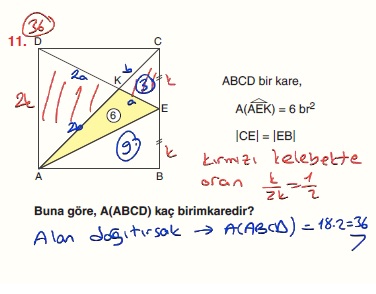 36
11.
D
C
2a
b
K
3
k
a
2k
6
E
2b
9
k
A
B
ABCD bir kare,
A(AEK) = 6 br²
|CE| = |EB|
kırmızı kelebekte
oran k/2k = 1/2
Buna göre, A(ABCD) kaç birimkaredir?
Alan dağıtırsak → A(ABCD) = 18.2=36